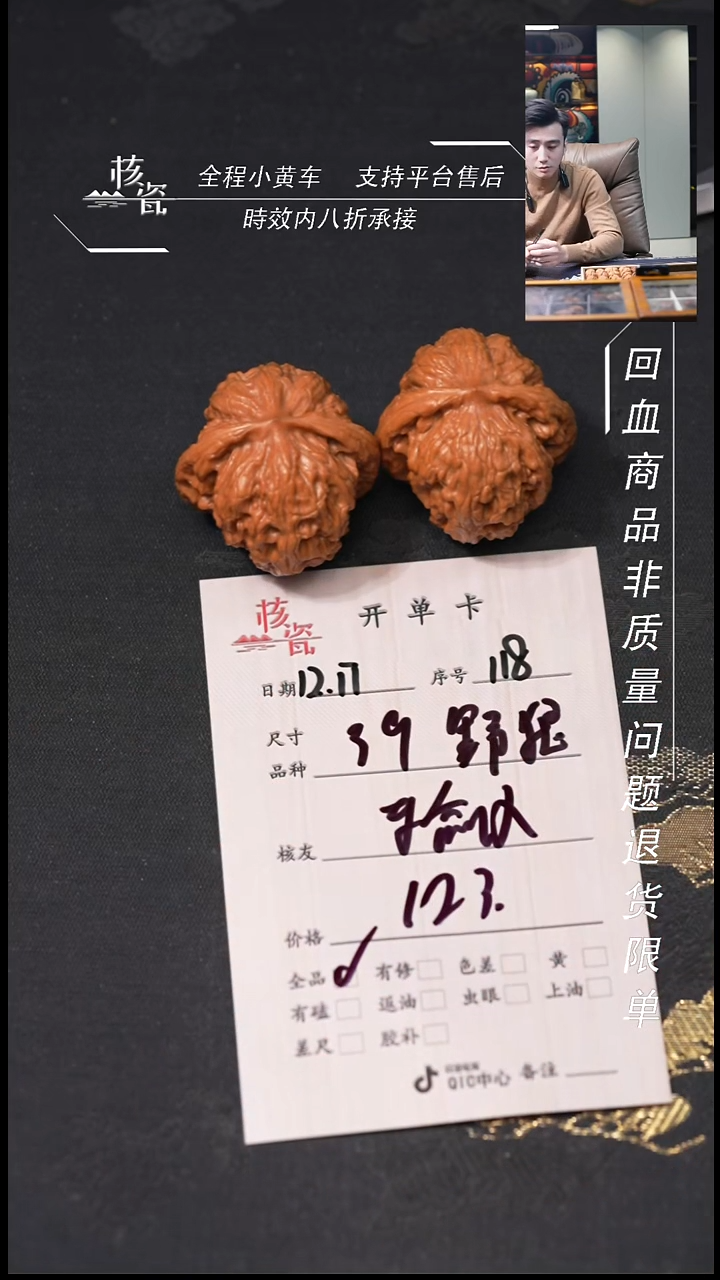 核瓷
全程小黄车 支持平台售后
時效内八折承接
回血商品非质量问题退货限单
核瓷
开单卡
日期 12.17 序号 118
尺寸
品种 39 野狼
核友
价格 123.
全品 有修 色差 黄
有磕 返油 虫眼 上油
差尺 胶补
QIC中心 备注